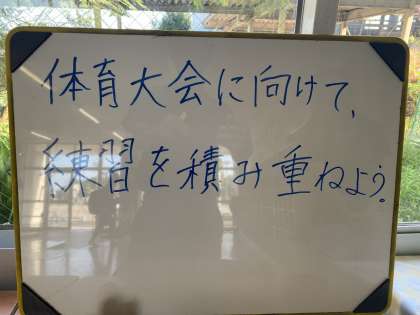 体育大会に向けて、
練習を積み重ねよう。